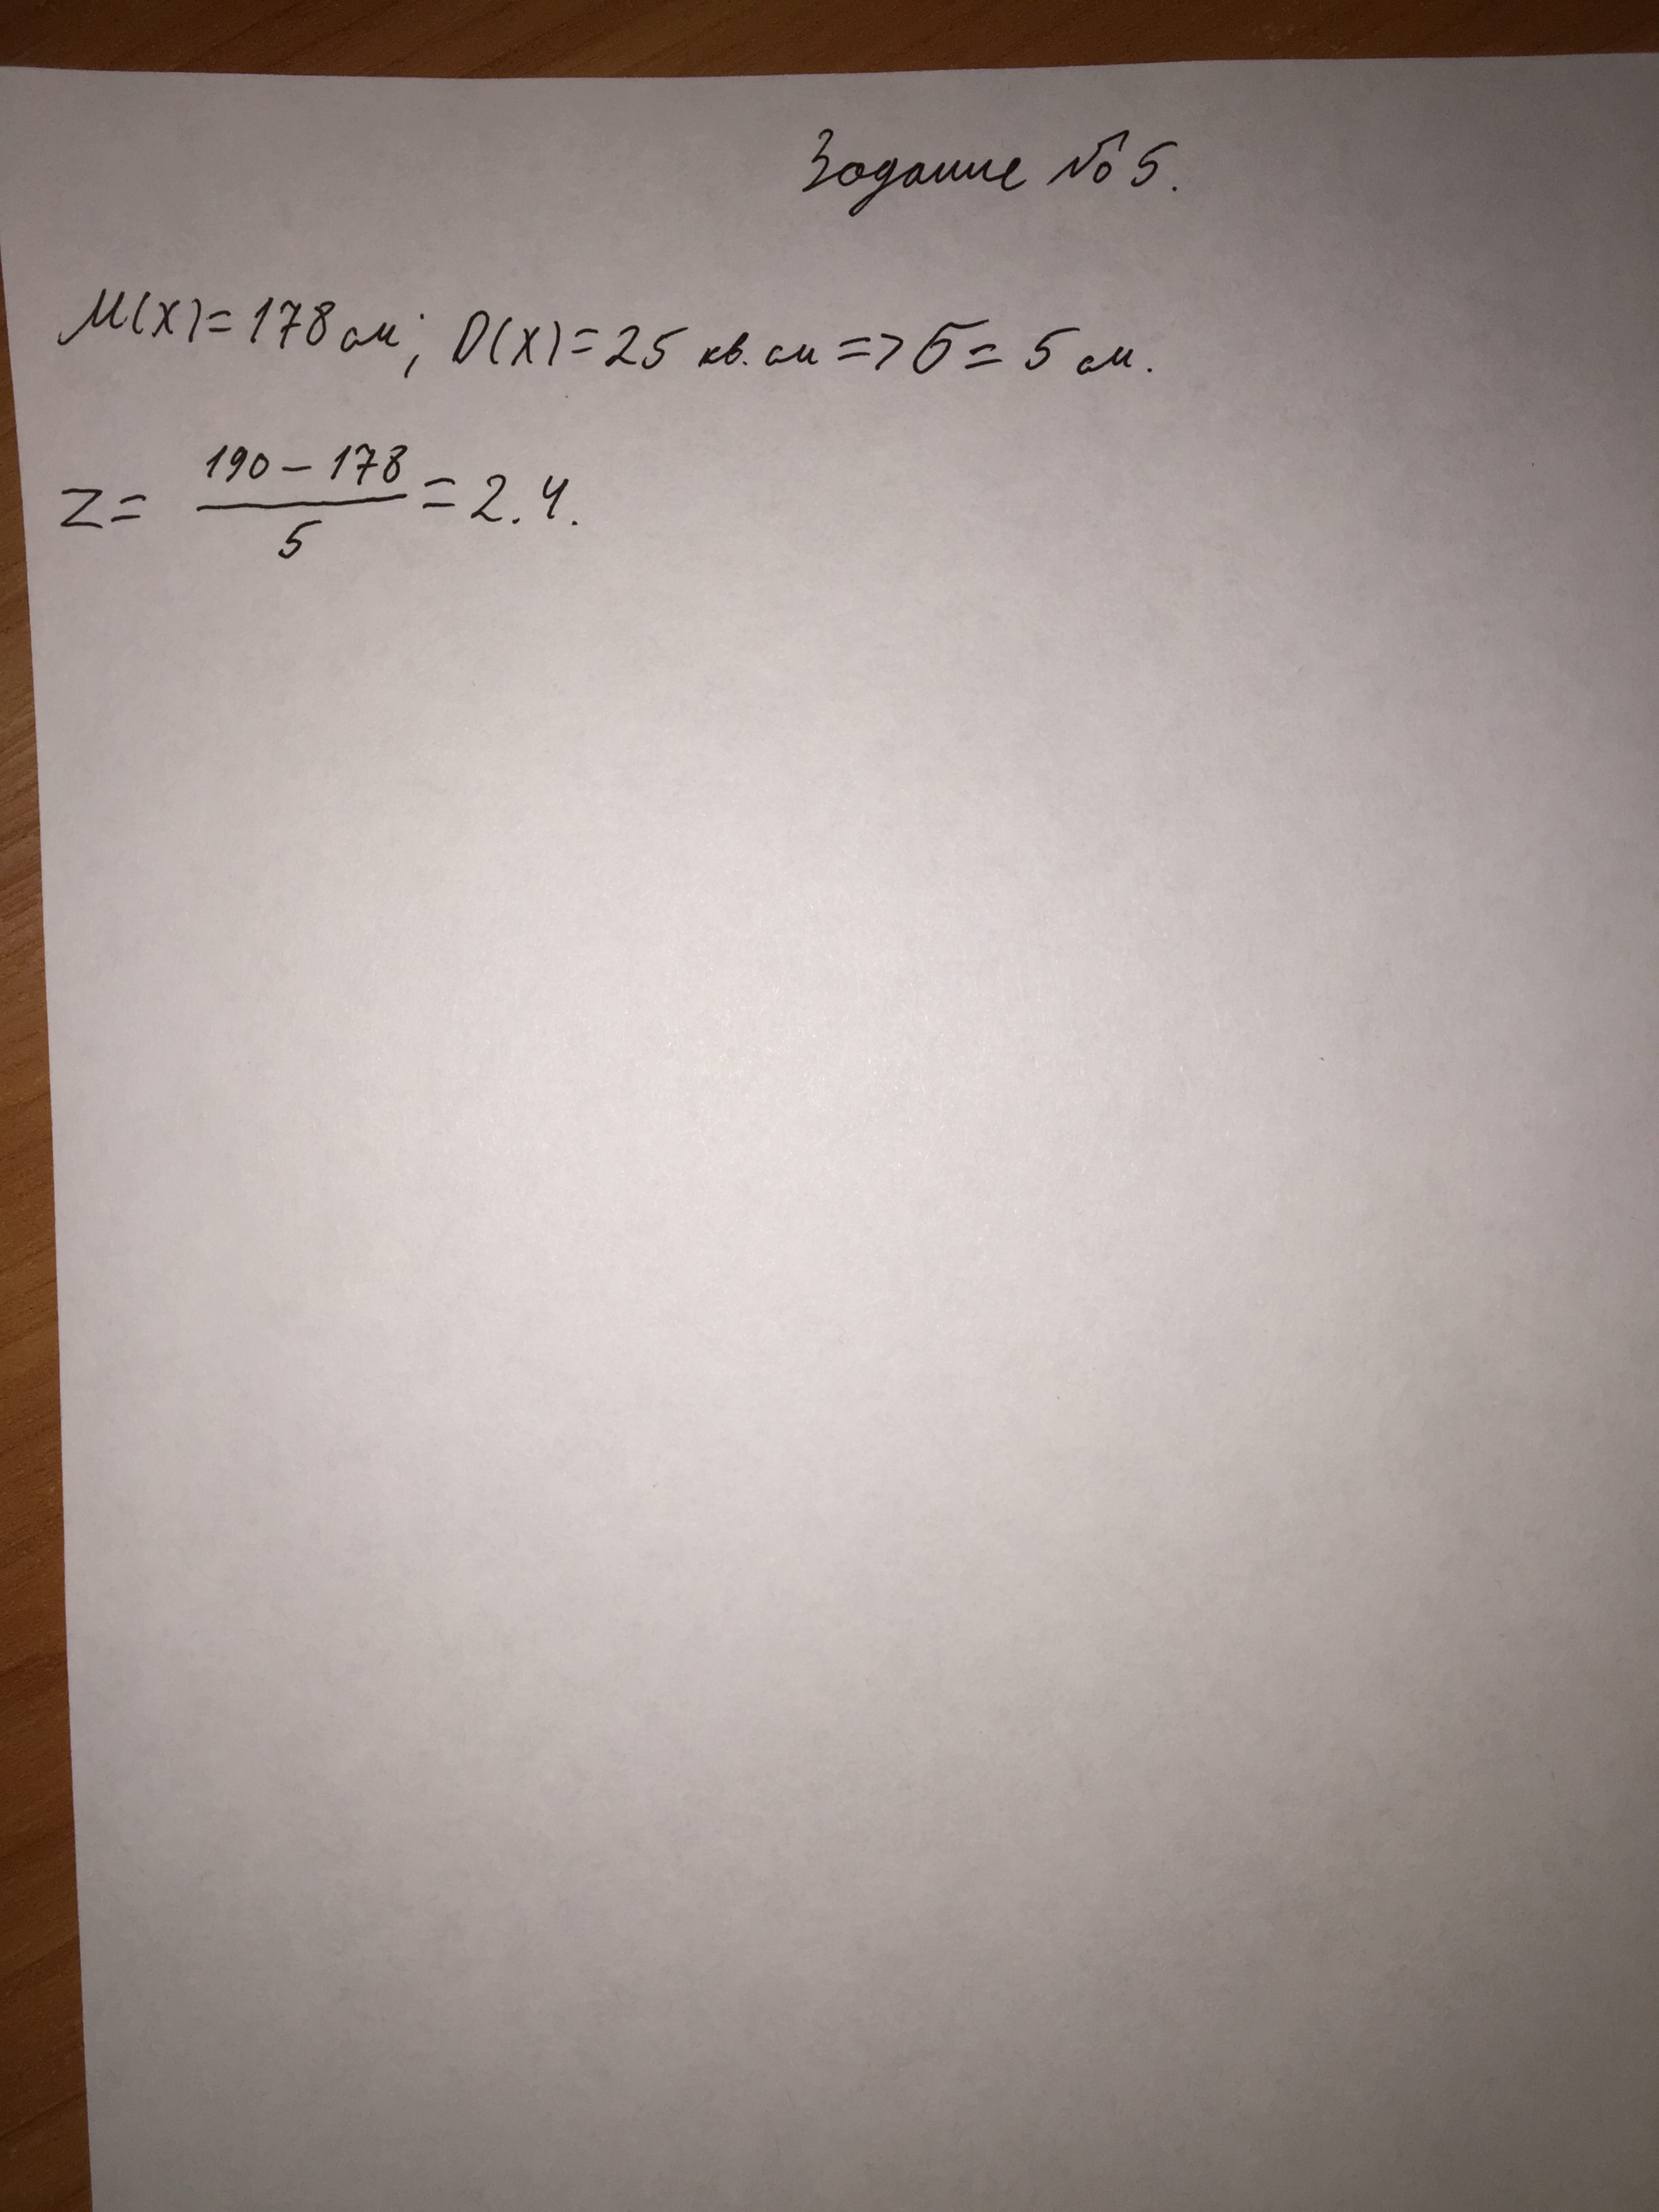 Задание №5.
M(X)=178 см; D(X)=25 кв. см => σ = 5 см.
Z= (190-178)/5 = 2.4.